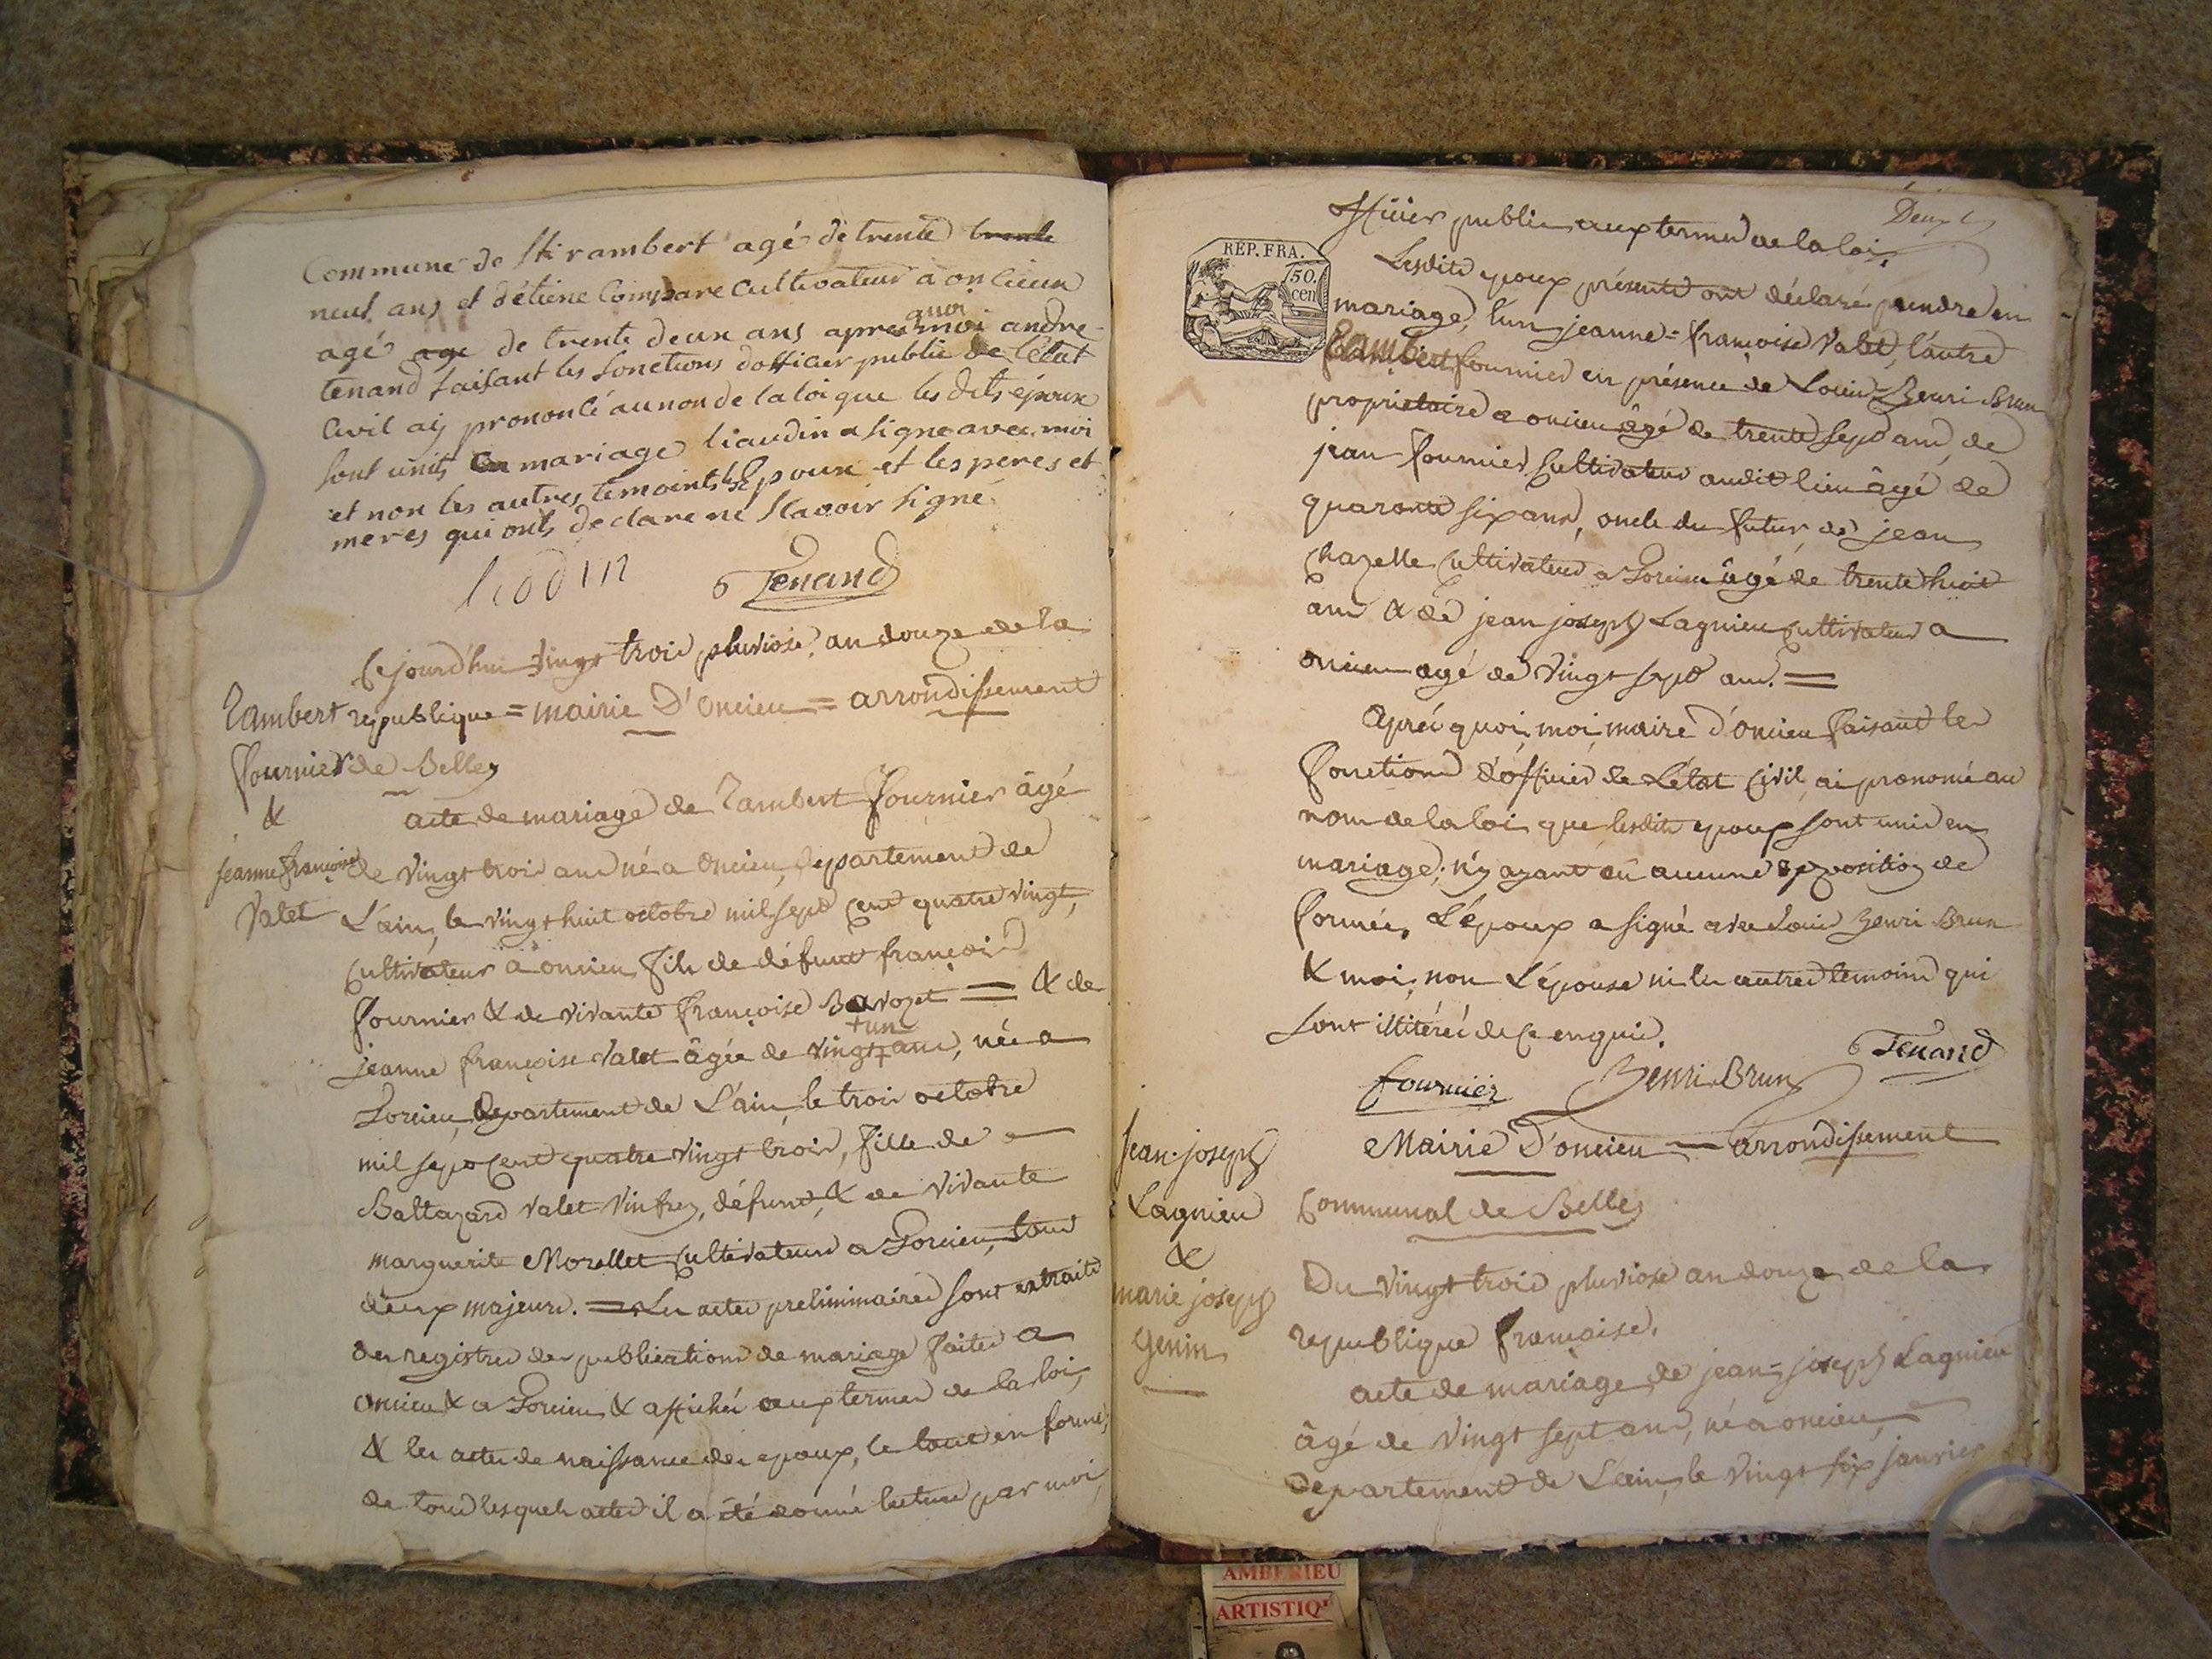 Commune de St rambert agé de trente trente
neuf ans et d'étiene Compare Cultivateur a oncieux
agé age de trente deux ans apres quoi moi andre
tenand faisant les fonctions dofficier public de létat
Civil aij prononcé au non de la loi que les dits époux
sont units en mariage liaudin a signe avec moi
et non les autres temoints lépoux et les peres et
meres qui onts declare ne scavoir signé
liodin Tenand
Cejourd'hui vingt trois pluviose, an douze de la
republique = mairie D'oncieu = arrondissement
de Belley
Rambert
fournier
&
jeanne françoise
Valet
acte de mariage de Rambert fournier âgé
de vingt trois ans né a oncieu, departement de
L'ain, le vingt huit octobre mil sept cent quatre vingt,
cultivateur à oncieu fils de défunt françois
fournier & de vivante françoise Bavozet = & de
jeanne françoise Valet âgée de vingt + un ans, née a
Torcieu, departement de L'ain, le trois octobre
mil sept cent quatre vingt trois, fille de
Baltazard Valet Vinfrey, défunt, & de vivante
marguerite Morellet cultivateurs a Torcieu, tous
deux majeurs. = Les actes preliminaires sont extraits
des registres des publications de mariage faites a
oncieu & a Torcieu & affichés aux termes de la loi,
& les actes de naissance des epoux, le tout en forme,
de tous lesquels actes il a été donné lecture par moi,
officier public aux termes de la loi.
RÉP. FRA.
50.
cen
Lesdits epoux présents ont déclaré prendre en
mariage, l'un jeanne=françoise Valet, l'autre
Rambert fournier en présence de Louis Henri Brun
proprietaire a oncieu âgé de trente sept ans, de
jean fournier cultivateur audit lieu âgé de
quarante six ans, oncle du futur, de jean
chazelle cultivateur a Torcieu âgé de trente huit
ans & de jean joseph Lagnieu cultivateur a
oncieu agé de vingt sept ans. =
Après quoi, moi maire d'oncieu faisant les
fonctions d'officier de L'état civil, ai prononcé au
nom de la loi que lesdits epoux sont unis en
mariage, n'y ayant eû aucune opposition de
formée. L'époux a signé avec Louis henri Brun
& moi, non L'épouse ni les autres temoins qui
sont illitérés de ce enquis.
fournier Henri Brun Tenand
Mairie D'oncieu = arrondissement
Communal de Belley
Jean-joseph
Lagnieu
&
marie joseph
Genin
Du vingt trois pluviose an douze de la
republique française.
acte de mariage de jean=joseph Lagnieu
âgé de vingt sept ans, né a oncieu,
departement de L'ain, le vingt six janvier
AMBERIEU
ARTISTIQ